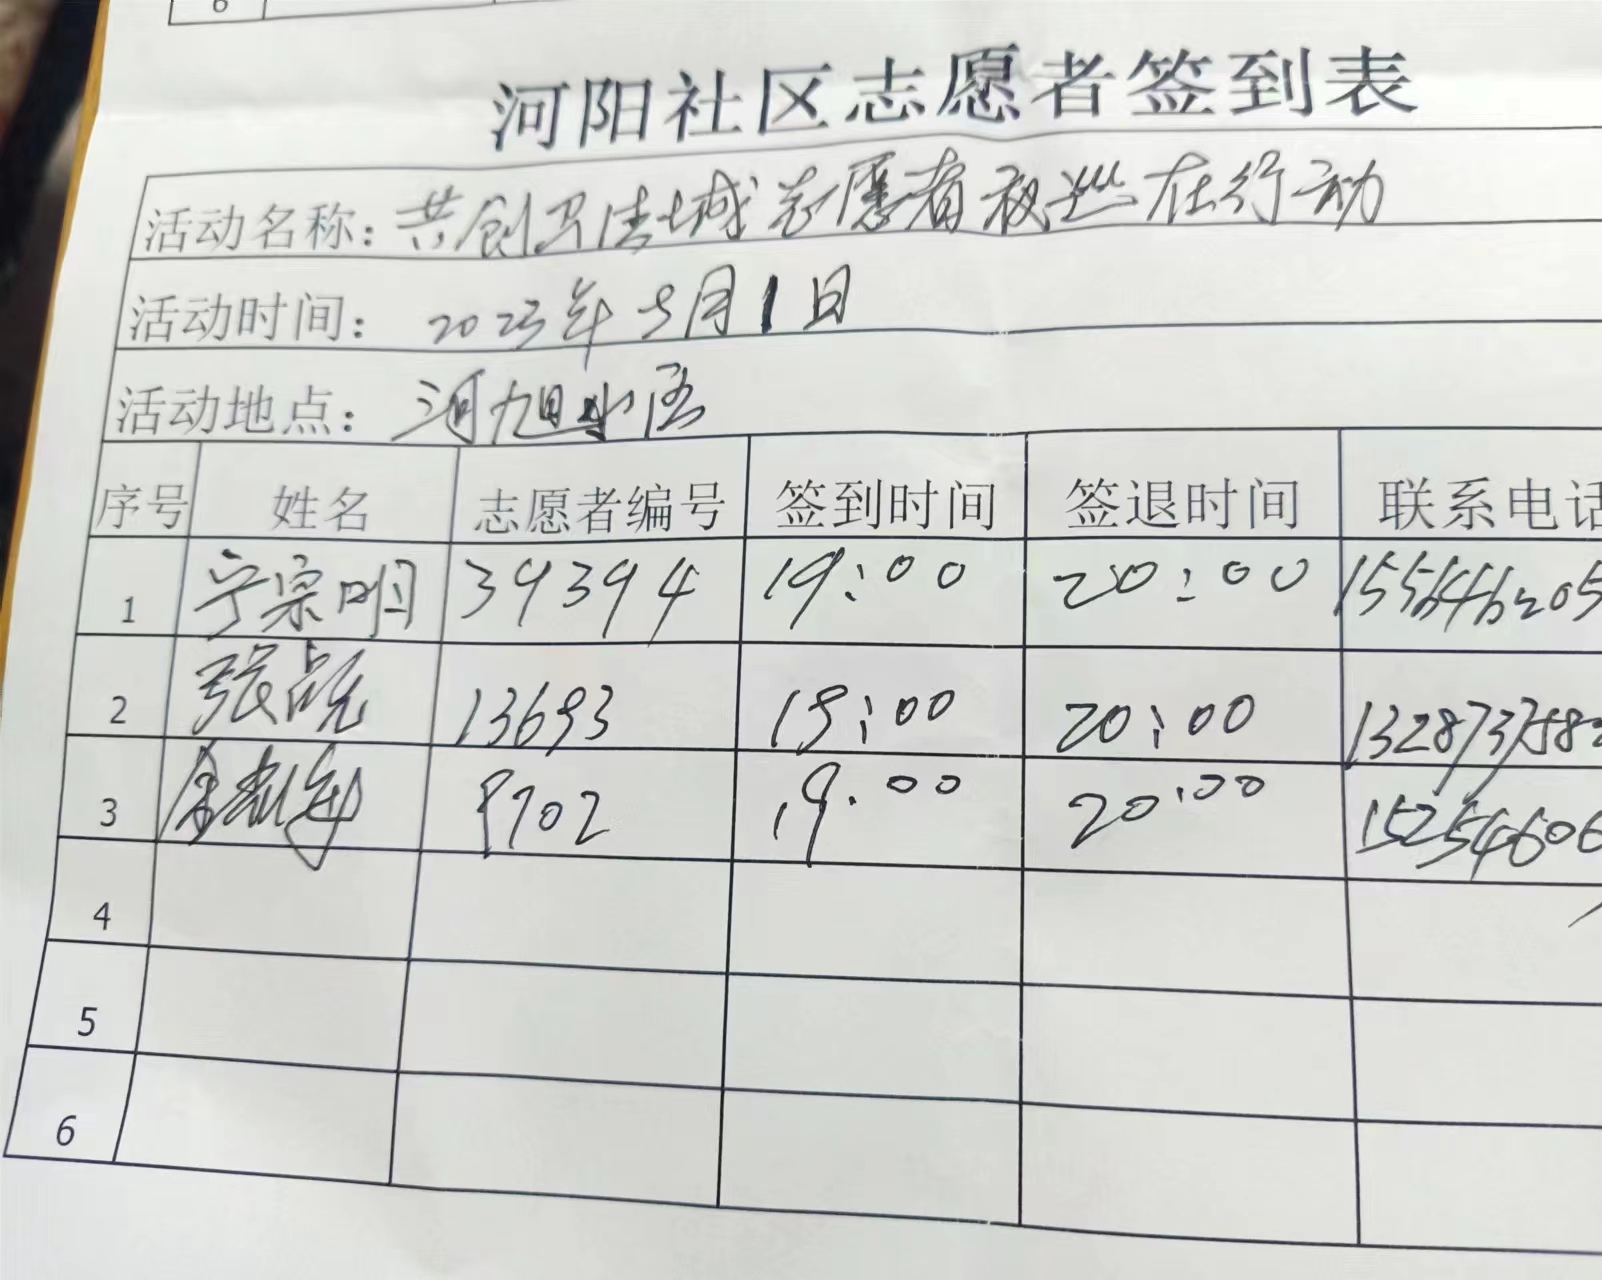 6
河阳社区志愿者签到表
活动名称: 共创卫生城 志愿者夜巡在行动
活动时间: 2023年5月1日
活动地点: 河旭小区
序号 姓名 志愿者编号 签到时间 签退时间 联系电话
1 宁宗明 39394 19:00 20:00 155646205
2 张 13693 19:00 20:00 1328737582
3 9702 19:00 20:00 15254606
4
5
6